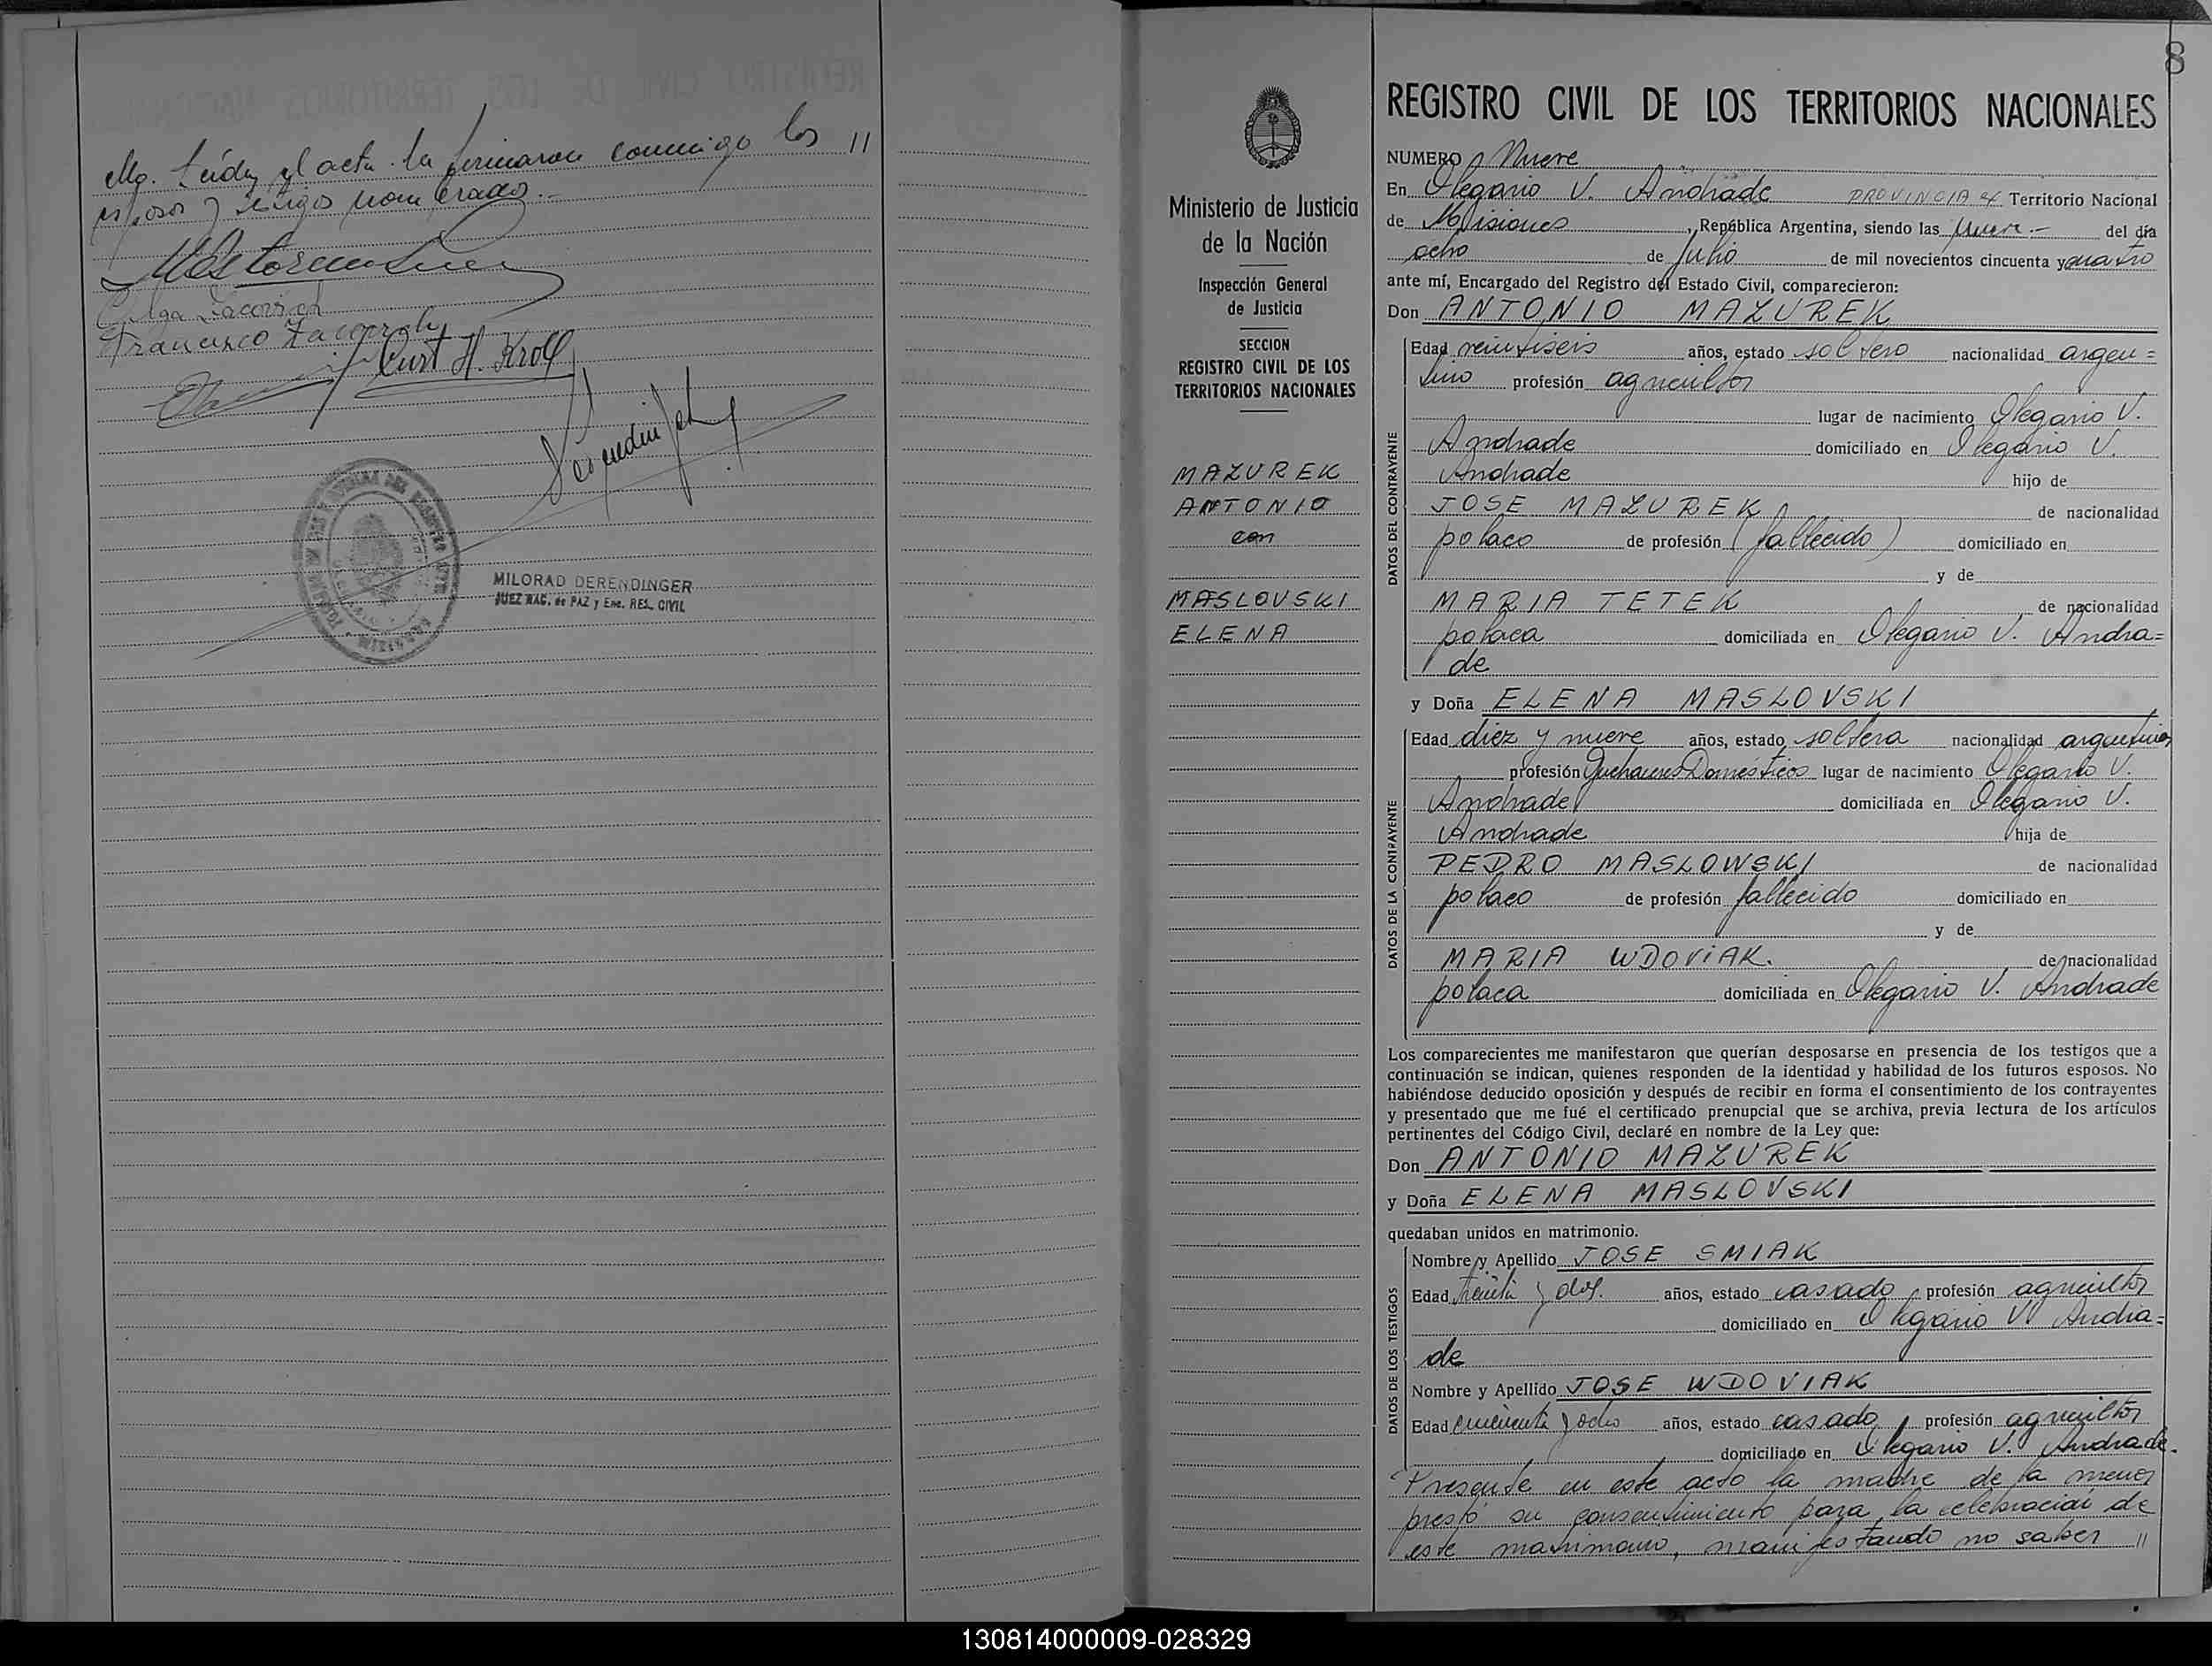 ella. Leída el acta la firmaron conmigo los //
esposos y testigos nombrados.-
Olga Zacovich
Francisco
Curt H. Kroll
MILORAD DERENDINGER
JUEZ NAC. de PAZ y Enc. REG. CIVIL
8
Ministerio de Justicia
de la Nación
Inspección General
de Justicia
SECCION
REGISTRO CIVIL DE LOS
TERRITORIOS NACIONALES
MAZUREK
ANTONIO
con
MASLOVSKI
ELENA
REGISTRO CIVIL DE LOS TERRITORIOS NACIONALES
NUMERO Nueve
En Olegario V. Andrade PROVINCIA de Territorio Nacional
de Misiones, República Argentina, siendo las nueve.- del día
ocho de Julio de mil novecientos cincuenta y cuatro
ante mí, Encargado del Registro del Estado Civil, comparecieron:
Don ANTONIO MAZUREK
DATOS DEL CONTRAYENTE
Edad veintiseis años, estado soltero nacionalidad argen=
tino profesión agricultor
lugar de nacimiento Olegario V.
Andrade domiciliado en Olegario V.
Andrade hijo de
JOSE MAZUREK de nacionalidad
polaco de profesión (fallecido) domiciliado en
y de
MARIA TETEK de nacionalidad
polaca domiciliada en Olegario V. Andra=
de
y Doña ELENA MASLOVSKI
DATOS DE LA CONTRAYENTE
Edad diez y nueve años, estado soltera nacionalidad argentina
profesión Quehaceres Domésticos lugar de nacimiento Olegario V.
Andrade domiciliada en Olegario V.
Andrade hija de
PEDRO MASLOWSKI de nacionalidad
polaco de profesión fallecido domiciliado en
y de
MARIA WDOVIAK. de nacionalidad
polaca domiciliada en Olegario V. Andrade
Los comparecientes me manifestaron que querían desposarse en presencia de los testigos que a
continuación se indican, quienes responden de la identidad y habilidad de los futuros esposos. No
habiéndose deducido oposición y después de recibir en forma el consentimiento de los contrayentes
y presentado que me fué el certificado prenupcial que se archiva, previa lectura de los artículos
pertinentes del Código Civil, declaré en nombre de la Ley que:
Don ANTONIO MAZUREK
y Doña ELENA MASLOVSKI
quedaban unidos en matrimonio.
DATOS DE LOS TESTIGOS
Nombre y Apellido JOSE SMIAK
Edad treinta y dos. años, estado casado profesión agricultor
domiciliado en Olegario V. Andra=
de
Nombre y Apellido JOSE WDOVIAK
Edad cincuenta y ocho años, estado casado, profesión agricultor
domiciliado en Olegario V. Andrade.
Presente en este acto la madre de la menor
prestó su consentimiento para la celebración de
este matrimonio, manifestando no saber //
130814000009-028329